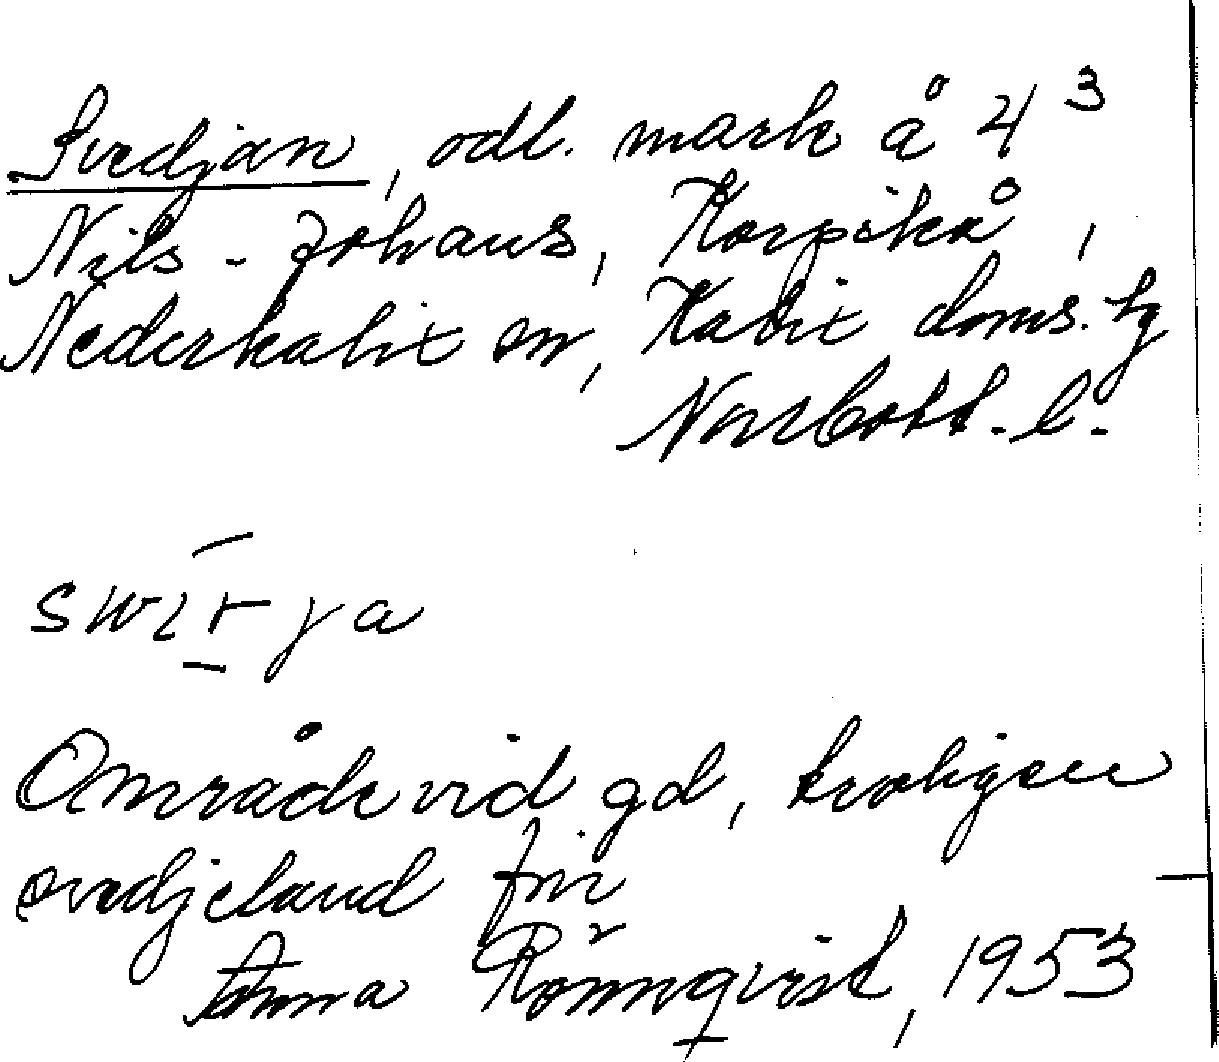 Svedjan, odl. mark å 4³
Nils-Johans, Korpikå,
Nederkalix sn, Kalix doms. tg
Norrbott. l.
Område vid gd, troligen
svedjeland förr
Anna Rönnqvist, 1953